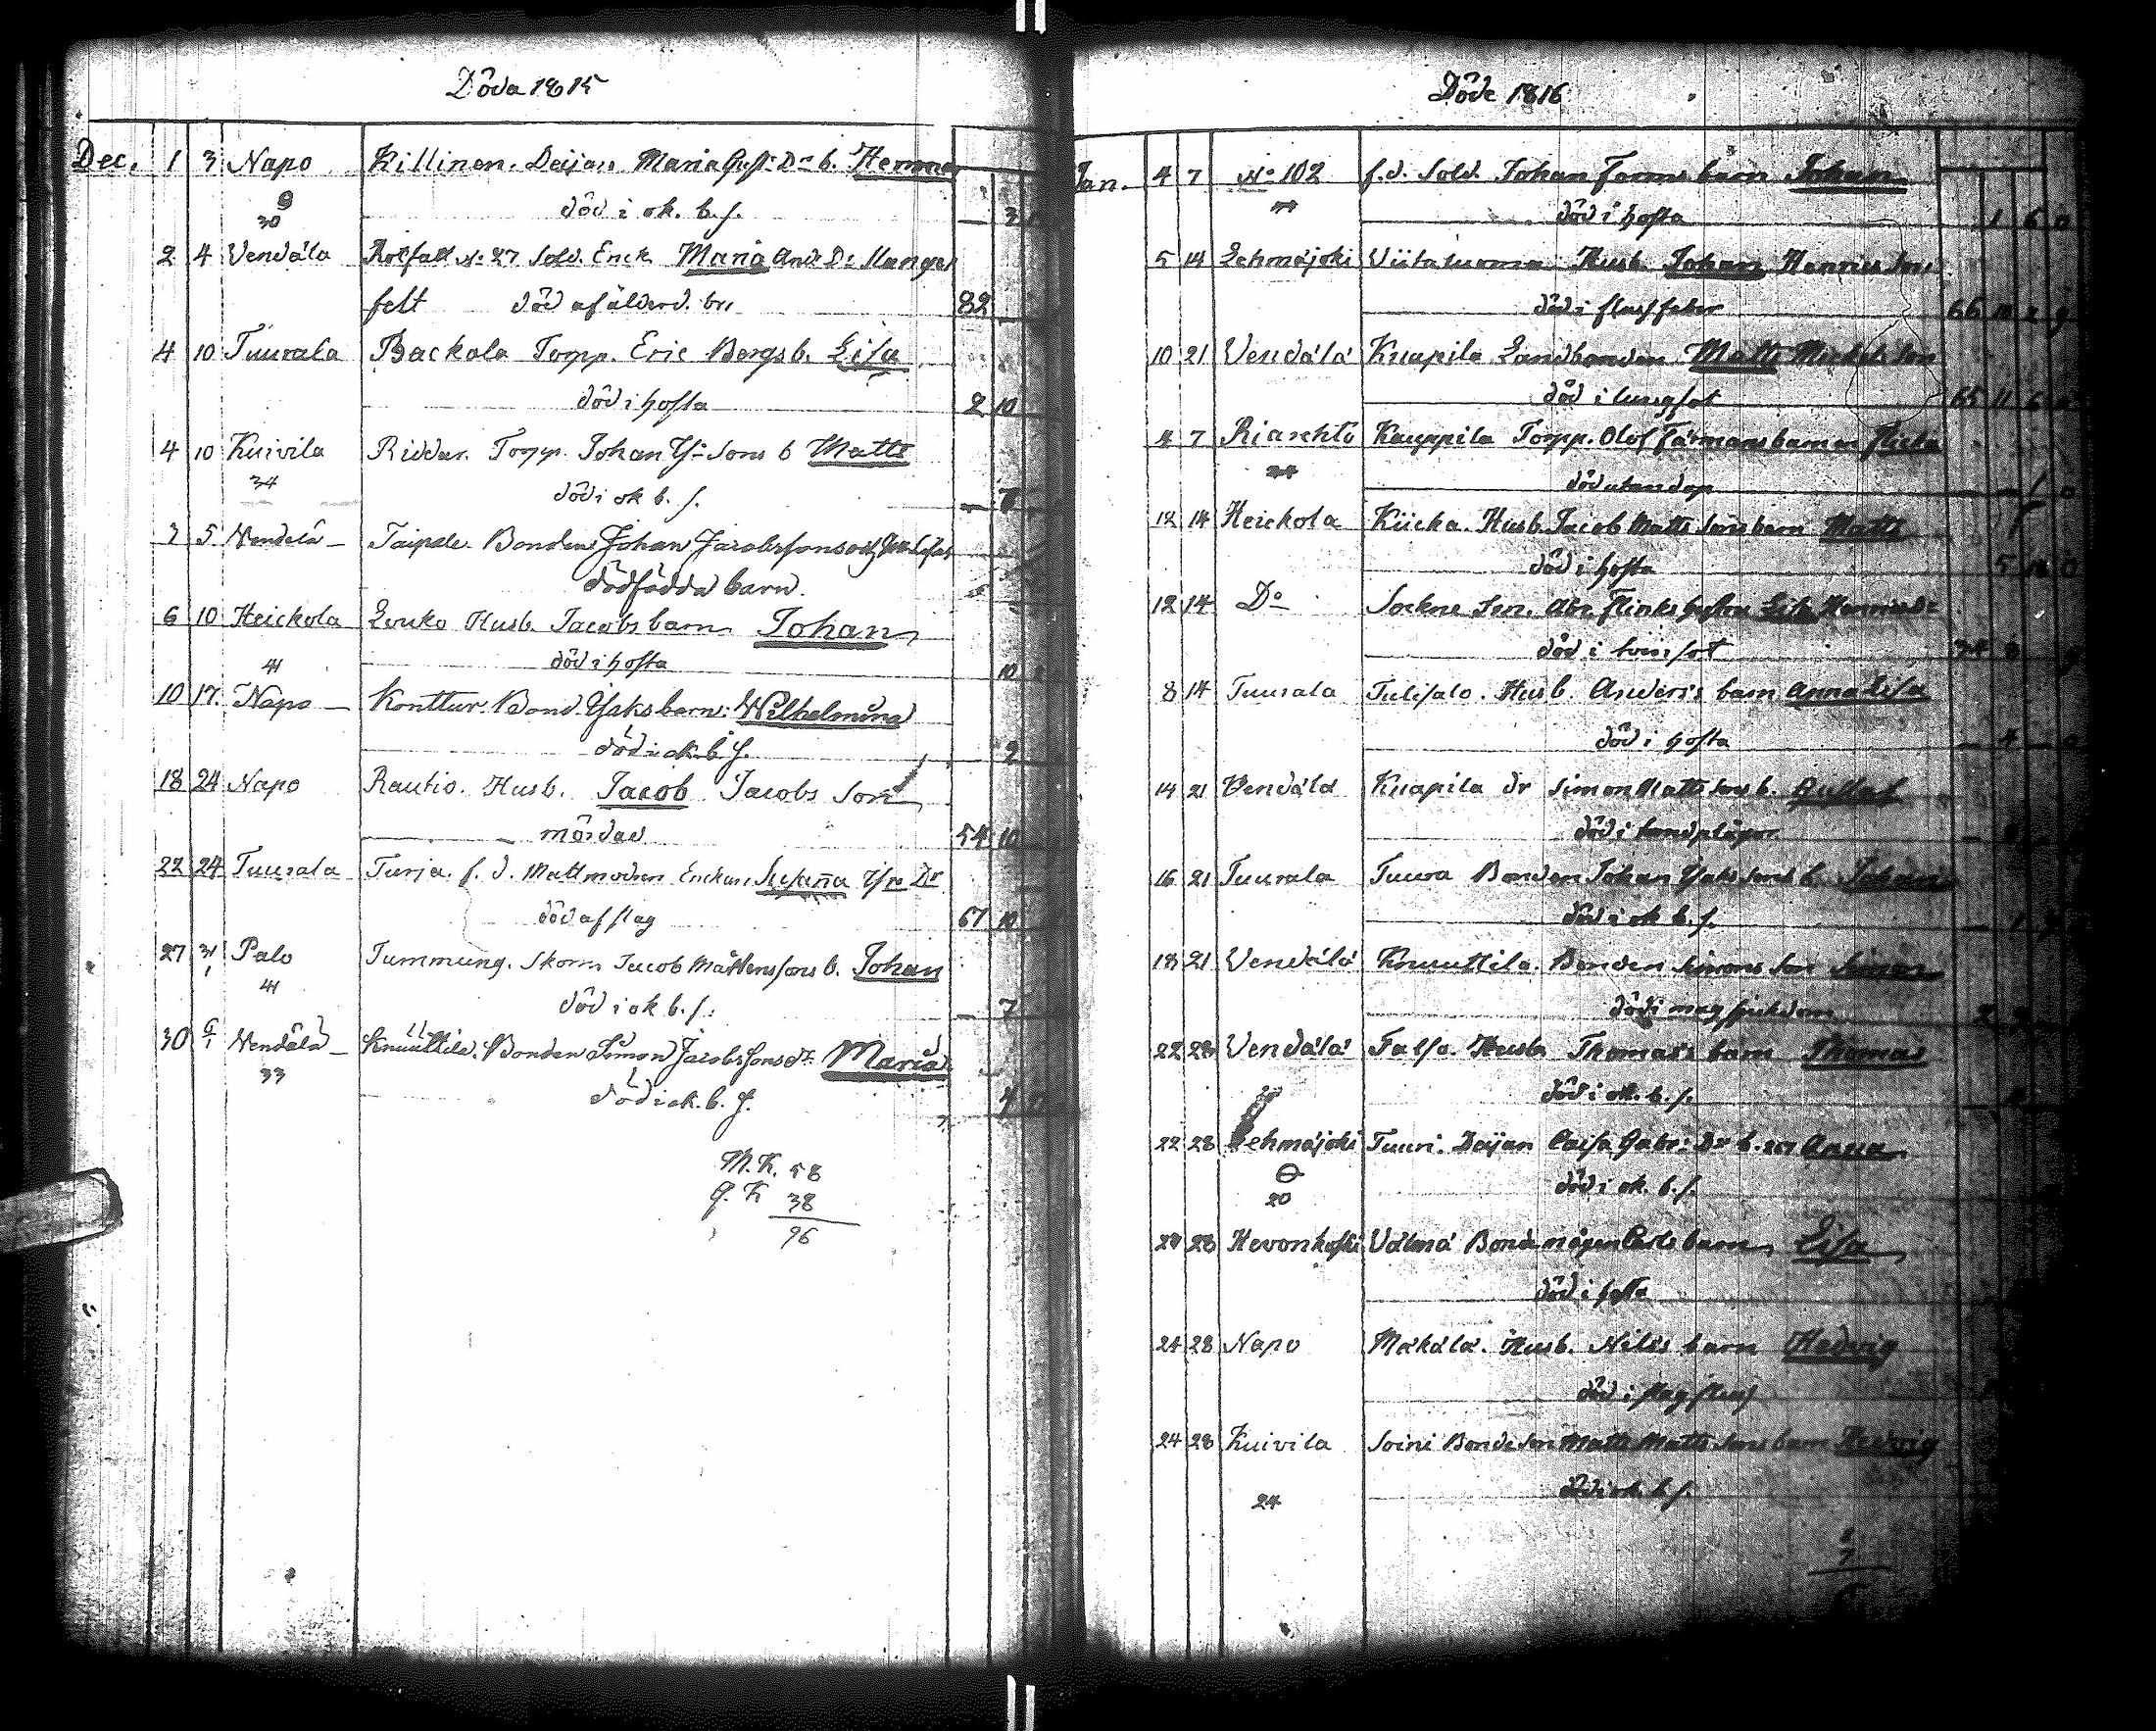 Döda 1815
Dec. 1 3 Napo Killinen. Deijan Maria Gust. Dr b. Henric
9 död i ok. b. s. — 3
30
2 4 Vendälä Rotfatt. No 27 Sold. Enck. Maria And. Dr Slanger
felt död af ålderd. br. 82
4 10 Tuurala Backala Torp. Eric Bergs b. Lisa
död i hosta 2 10
4 10 Kuivila Riddar. Torp. Johan Is. Sons b Matts
34 död i ok b. s. — 7
3 5 Wendelä — Taipale. Bonden Johan Jacobssons
dödfödda barn.
6 10 Heickola Louko Husb. Jacobs barn Johan
41 död i hosta 10
10 17. Napo — Konttur. Bond. Isaks barn: Wilhelmina
död i ok. b. s. 2
18 24 Napo Rautio. Husb. Jacob Jacobs Son
mördad 54 10
22 24 Tuurala Turja. f. d. Mattmodren Enckan Susanna Is. Dr
död af slag 67 10
27 31 Palo Tummung. Skom. Jacob Mårtenssons b. Johan
1
41 död i ok b. s. — 7
30 6 Wendälä — Knuuttila. Bonden Simon Jacobssons dr. Maria
1
33 död i ok. b. s. 4
M. K. 58
Q. K 38
96
Döde 1816
Jan. 4 7 No 102 f. d. Sold. Johan Forms barn Johan
död i hosta 1 6 0
5 14 Lehmäjoki Viitaluoma Husb. Johan Henrics Son
död i flussfeber 66 10 2
10 21 Vendälä Knapila Landbonden Matts Mickels Son
död i lungsot 65 11 6
4 7 Riaskto Kauppila Torp. Olof Färmans barn en flicka
24 död utan dop — — 1 0
12 14 Heickola Kiicka. Husb. Jacob Matts Sons barn Matts
död i hosta 5
12 14 Do Sockne Skr. Abr. Flinks hustru Lisa Henricsdr
död i tvinsot 74 8
8 14 Tuurala Tulisalo. Husb. Anders's barn Anna Lisa
död i hosta — 4 —
14 21 Vendälä Knapila dr Simon Matts Sons b. Gustaf
död i tandplågor —
16 21 Tuurala Tuura Bonden Johan Isaks Sons b. Johan
död i ok b. s. — 1
18 21 Vendälä Knuuttila. Bonden Simons Son Simon
död i mag sjukdom 2
22 28 Vendälä Falso. Husb. Thomas's barn Thomas
död i ok. b. s. —
22 28 Lehmäjoki Tuuri. Deijan Caisa Gabr: Dr b. Anna
död i ok. b. s.
20
24 28 Hevonkoski Välimä Bondemågen Carls barn Lisa
död i hosta
24 28 Napo Mäkälä. Husb. Nils's barn Hedvig
död i slagfluss
24 28 Kuivila Soini Bondeson Matts Matts Sons barn Hedvig
24 död i ok. b. s.
8
7